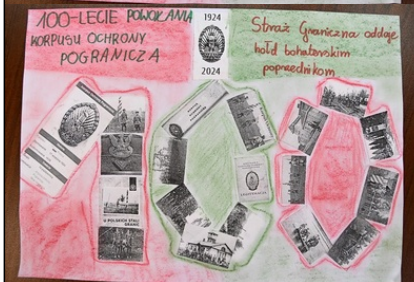 100-LECIE POWOŁANIA
KORPUSU OCHRONY
POGRANICZA
1924
2024
Straż Graniczna oddaje
hołd bohaterskim
poprzednikom